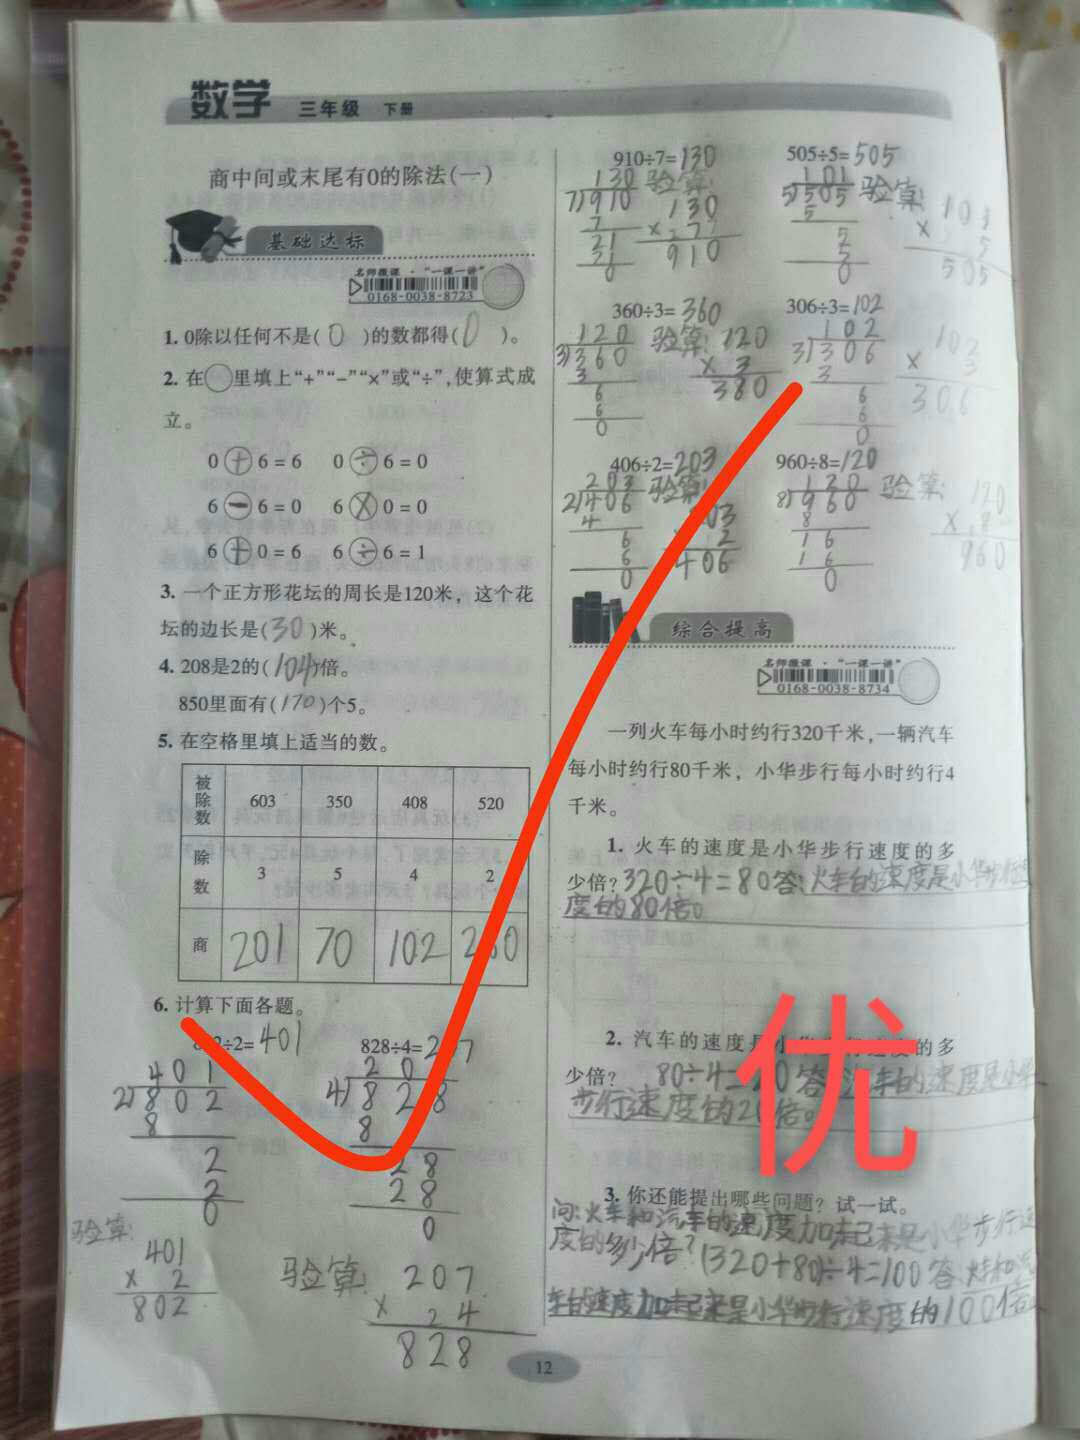 数学 三年级 下册
商中间或末尾有0的除法(一)
基础达标
名师微课·“一课一讲”
0168-0038-8723
1. 0除以任何不是( 0 )的数都得( 0 )。
2. 在○里填上“+”“-”“×”或“÷”,使算式成
立。
0 + 6 = 6 0 ÷ 6 = 0
6 - 6 = 0 6 × 0 = 0
6 + 0 = 6 6 ÷ 6 = 1
3. 一个正方形花坛的周长是120米，这个花
坛的边长是( 30 )米。
4. 208是2的( 104 )倍。
850里面有( 170 )个5。
5. 在空格里填上适当的数。
被除数 603 350 408 520
除数 3 5 4 2
商 201 70 102 260
6. 计算下面各题。
2÷2=401 828÷4=2 7
401 20
2 802 4 828
8 8
2 28
2 28
0 0
验算:
401
× 2
802
验算: 207
× 4
828
910÷7=130 505÷5=505
130 验算: 101 验算:
7 910 130 5 505
7 × 7 5 × 5
21 910 5 505
21 5
0 0
360÷3=360 306÷3=102
120 验算: 120 102
3 360 × 3 3 306 × 3
3 380 3 306
6 6
6 6
0 0
406÷2=203 960÷8=120
203 验算: 120 验算: 120
2 406 203 8 960 × 8
4 2 8 960
6 406 16
6 16
0 0
综合提高
名师微课·“一课一讲”
0168-0038-8734
一列火车每小时约行320千米,一辆汽车
每小时约行80千米，小华步行每小时约行4
千米。
1. 火车的速度是小华步行速度的多
少倍? 320÷4=80 答:火车的速度是小华步行速
度的80倍。
2. 汽车的速度是小华步行速度的多
少倍? 80÷4=20 答 汽车的速度是小华
步行速度的20倍。
优
3. 你还能提出哪些问题? 试一试。
问:火车和汽车的速度加起来是小华步行速
度的多少倍? (320+80)÷4=100 答:火车和汽
车的速度加起来是小华步行速度的100倍
12